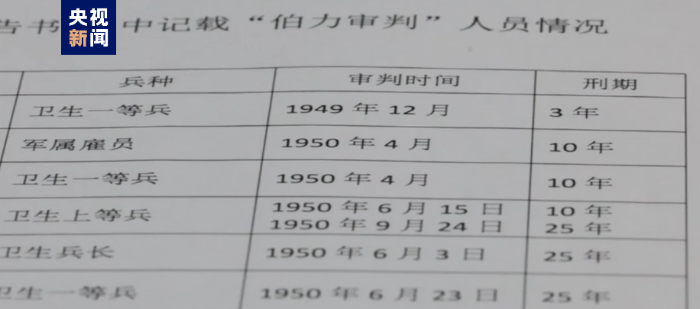 央视
新闻
告书 中记载“伯力审判”人员情况
兵种 审判时间 刑期
卫生一等兵 1949 年 12 月 3 年
军属雇员 1950 年 4 月 10 年
卫生一等兵 1950 年 4 月 10 年
卫生上等兵 1950 年 6 月 15 日 10 年
1950 年 9 月 24 日 25 年
卫生兵长 1950 年 6 月 3 日 25 年
卫生一等兵 1950 年 6 月 23 日 25 年